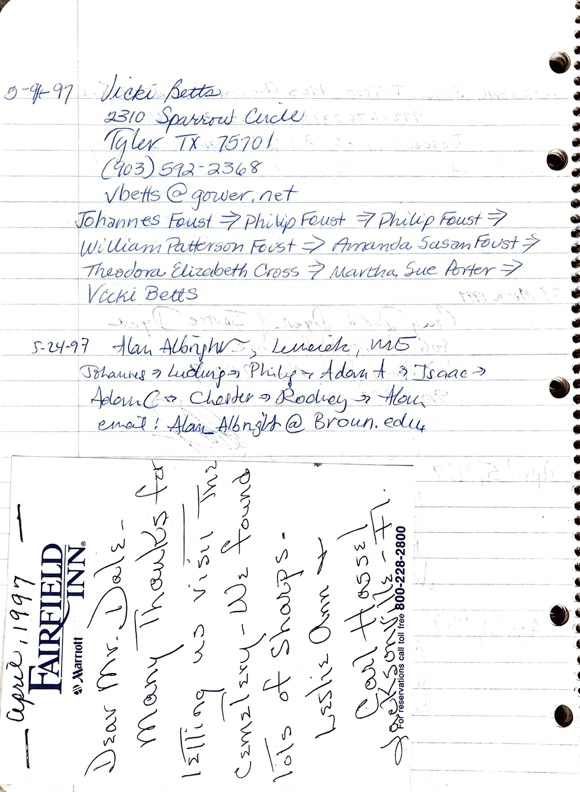 5-9-97 Vicki Betts
2310 Sparrow Circle
Tyler TX 75701
(903) 592-2368
vbetts@gower.net
Johannes Foust ⇒ Philip Foust ⇒ Philip Foust ⇒
William Patterson Foust ⇒ Amanda Susan Foust ⇒
Theodora Elizabeth Cross ⇒ Martha Sue Porter ⇒
Vicki Betts
5-24-97 Alan Albright, Limerick, ME
Johannes → Ludwig → Philip → Adam A → Isaac →
Adam C → Chester → Rodney → Alan
email: Alan_Albright@Brown.edu
— April, 1997 —
FAIRFIELD
INN®
Marriott
Dear Mr. Dale -
Many Thanks for
letting us visit the
Cemetery - We found
lots of Sharps.
Leslie Ann +
Carl Hassel
Jacksonville - Fl.
For reservations call toll free 800-228-2800